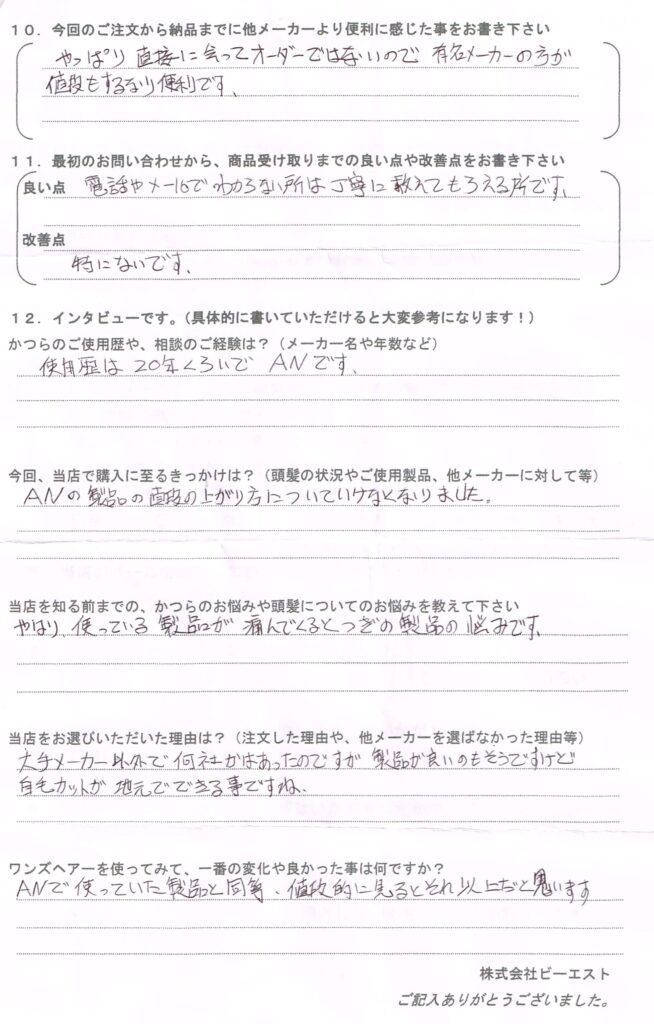 10．今回のご注文から納品までに他メーカーより便利に感じた事をお書き下さい
やっぱり 直接に会ってオーダーではないので 有名メーカーの方が
値段もするなり便利です、
11．最初のお問い合わせから、商品受け取りまでの良い点や改善点をお書き下さい
良い点 電話やメールでわからない所は丁寧に教えてもらえる所です、
改善点
特にないです、
12．インタビューです。（具体的に書いていただけると大変参考になります！）
かつらのご使用歴や、相談のご経験は？（メーカー名や年数など）
使用歴は 20年くらいで ANです、
今回、当店で購入に至るきっかけは？（頭髪の状況やご使用製品、他メーカーに対して等）
ANの製品の値段の上がり方についていけなくなりました。
当店を知る前までの、かつらのお悩みや頭髪についてのお悩みを教えて下さい
やはり、使っている製品が 痛んでくるとつぎの製品の悩みです、
当店をお選びいただいた理由は？（注文した理由や、他メーカーを選ばなかった理由等）
大手メーカー以外で何社かはあったのですが 製品が良いのもそうですけど
自毛カットが 地元でできる事ですね、
ワンズヘアーを使ってみて、一番の変化や良かった事は何ですか？
ANで使っていた製品と同等、値段的に見るとそれ以上だと思います
株式会社ビーエスト
ご記入ありがとうございました。